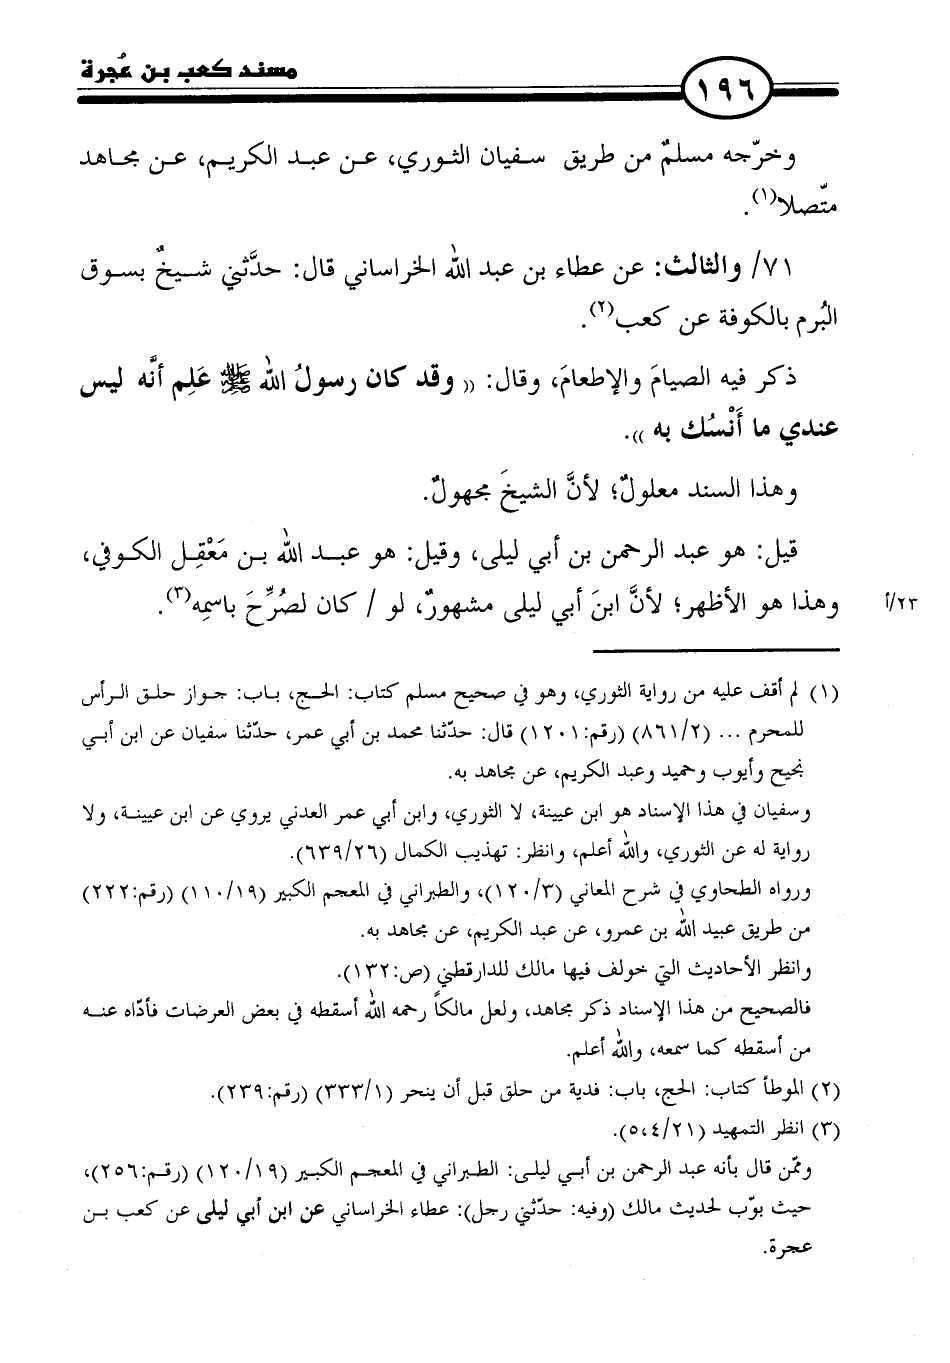 مسند كعب بن عُجرة
١٩٦
وخرّجه مسلمٌ من طريق سفيان الثوري، عن عبد الكريم، عن مجاهد
متّصلا(١).
٧١/ والثالث: عن عطاء بن عبد الله الخراساني قال: حدَّثني شيخٌ بسوق
البُرم بالكوفة عن كعب(٢).
ذكر فيه الصيامَ والإطعامَ، وقال: (( وقد كان رسولُ الله ﷺ عَلِم أنَّه ليس
عندي ما أَنْسُك به )).
وهذا السند معلولٌ؛ لأنَّ الشيخَ مجهولٌ.
قيل: هو عبد الرحمن بن أبي ليلى، وقيل: هو عبد الله بن مَعْقِل الكوفي،
وهذا هو الأظهر؛ لأنَّ ابنَ أبي ليلى مشهورٌ، لو / كان لصُرِّحَ باسمِه(٣).
٢٣/أ
(١) لم أقف عليه من رواية الثوري، وهو في صحيح مسلم كتاب: الحج، باب: جواز حلق الرأس
للمحرم ... (٨٦١/٢) (رقم:١٢٠١) قال: حدّثنا محمد بن أبي عمر، حدّثنا سفيان عن ابن أبي
نجيح وأيوب وحميد وعبد الكريم، عن مجاهد به.
وسفيان في هذا الإسناد هو ابن عيينة، لا الثوري، وابن أبي عمر العدني يروي عن ابن عيينة، ولا
رواية له عن الثوري، والله أعلم، وانظر: تهذيب الكمال (٦٣٩/٢٦).
ورواه الطحاوي في شرح المعاني (١٢٠/٣)، والطبراني في المعجم الكبير (١١٠/١٩) (رقم:٢٢٢)
من طريق عبيد الله بن عمرو، عن عبد الكريم، عن مجاهد به.
وانظر الأحاديث التي خولف فيها مالك للدارقطني (ص:١٣٢).
فالصحيح من هذا الإسناد ذكر مجاهد، ولعل مالكاً رحمه الله أسقطه في بعض العرضات فأدّاه عنه
من أسقطه كما سمعه، والله أعلم.
(٢) الموطأ كتاب: الحج، باب: فدية من حلق قبل أن ينحر (٣٣٣/١) (رقم:٢٣٩).
(٣) انظر التمهيد (٥،٤/٢١).
وممّن قال بأنه عبد الرحمن بن أبي ليلى: الطبراني في المعجم الكبير (١٢٠/١٩) (رقم:٢٥٦)،
حيث بوّب لحديث مالك (وفيه: حدّثني رجل): عطاء الخراساني عن ابن أبي ليلى عن كعب بن
عجرة.